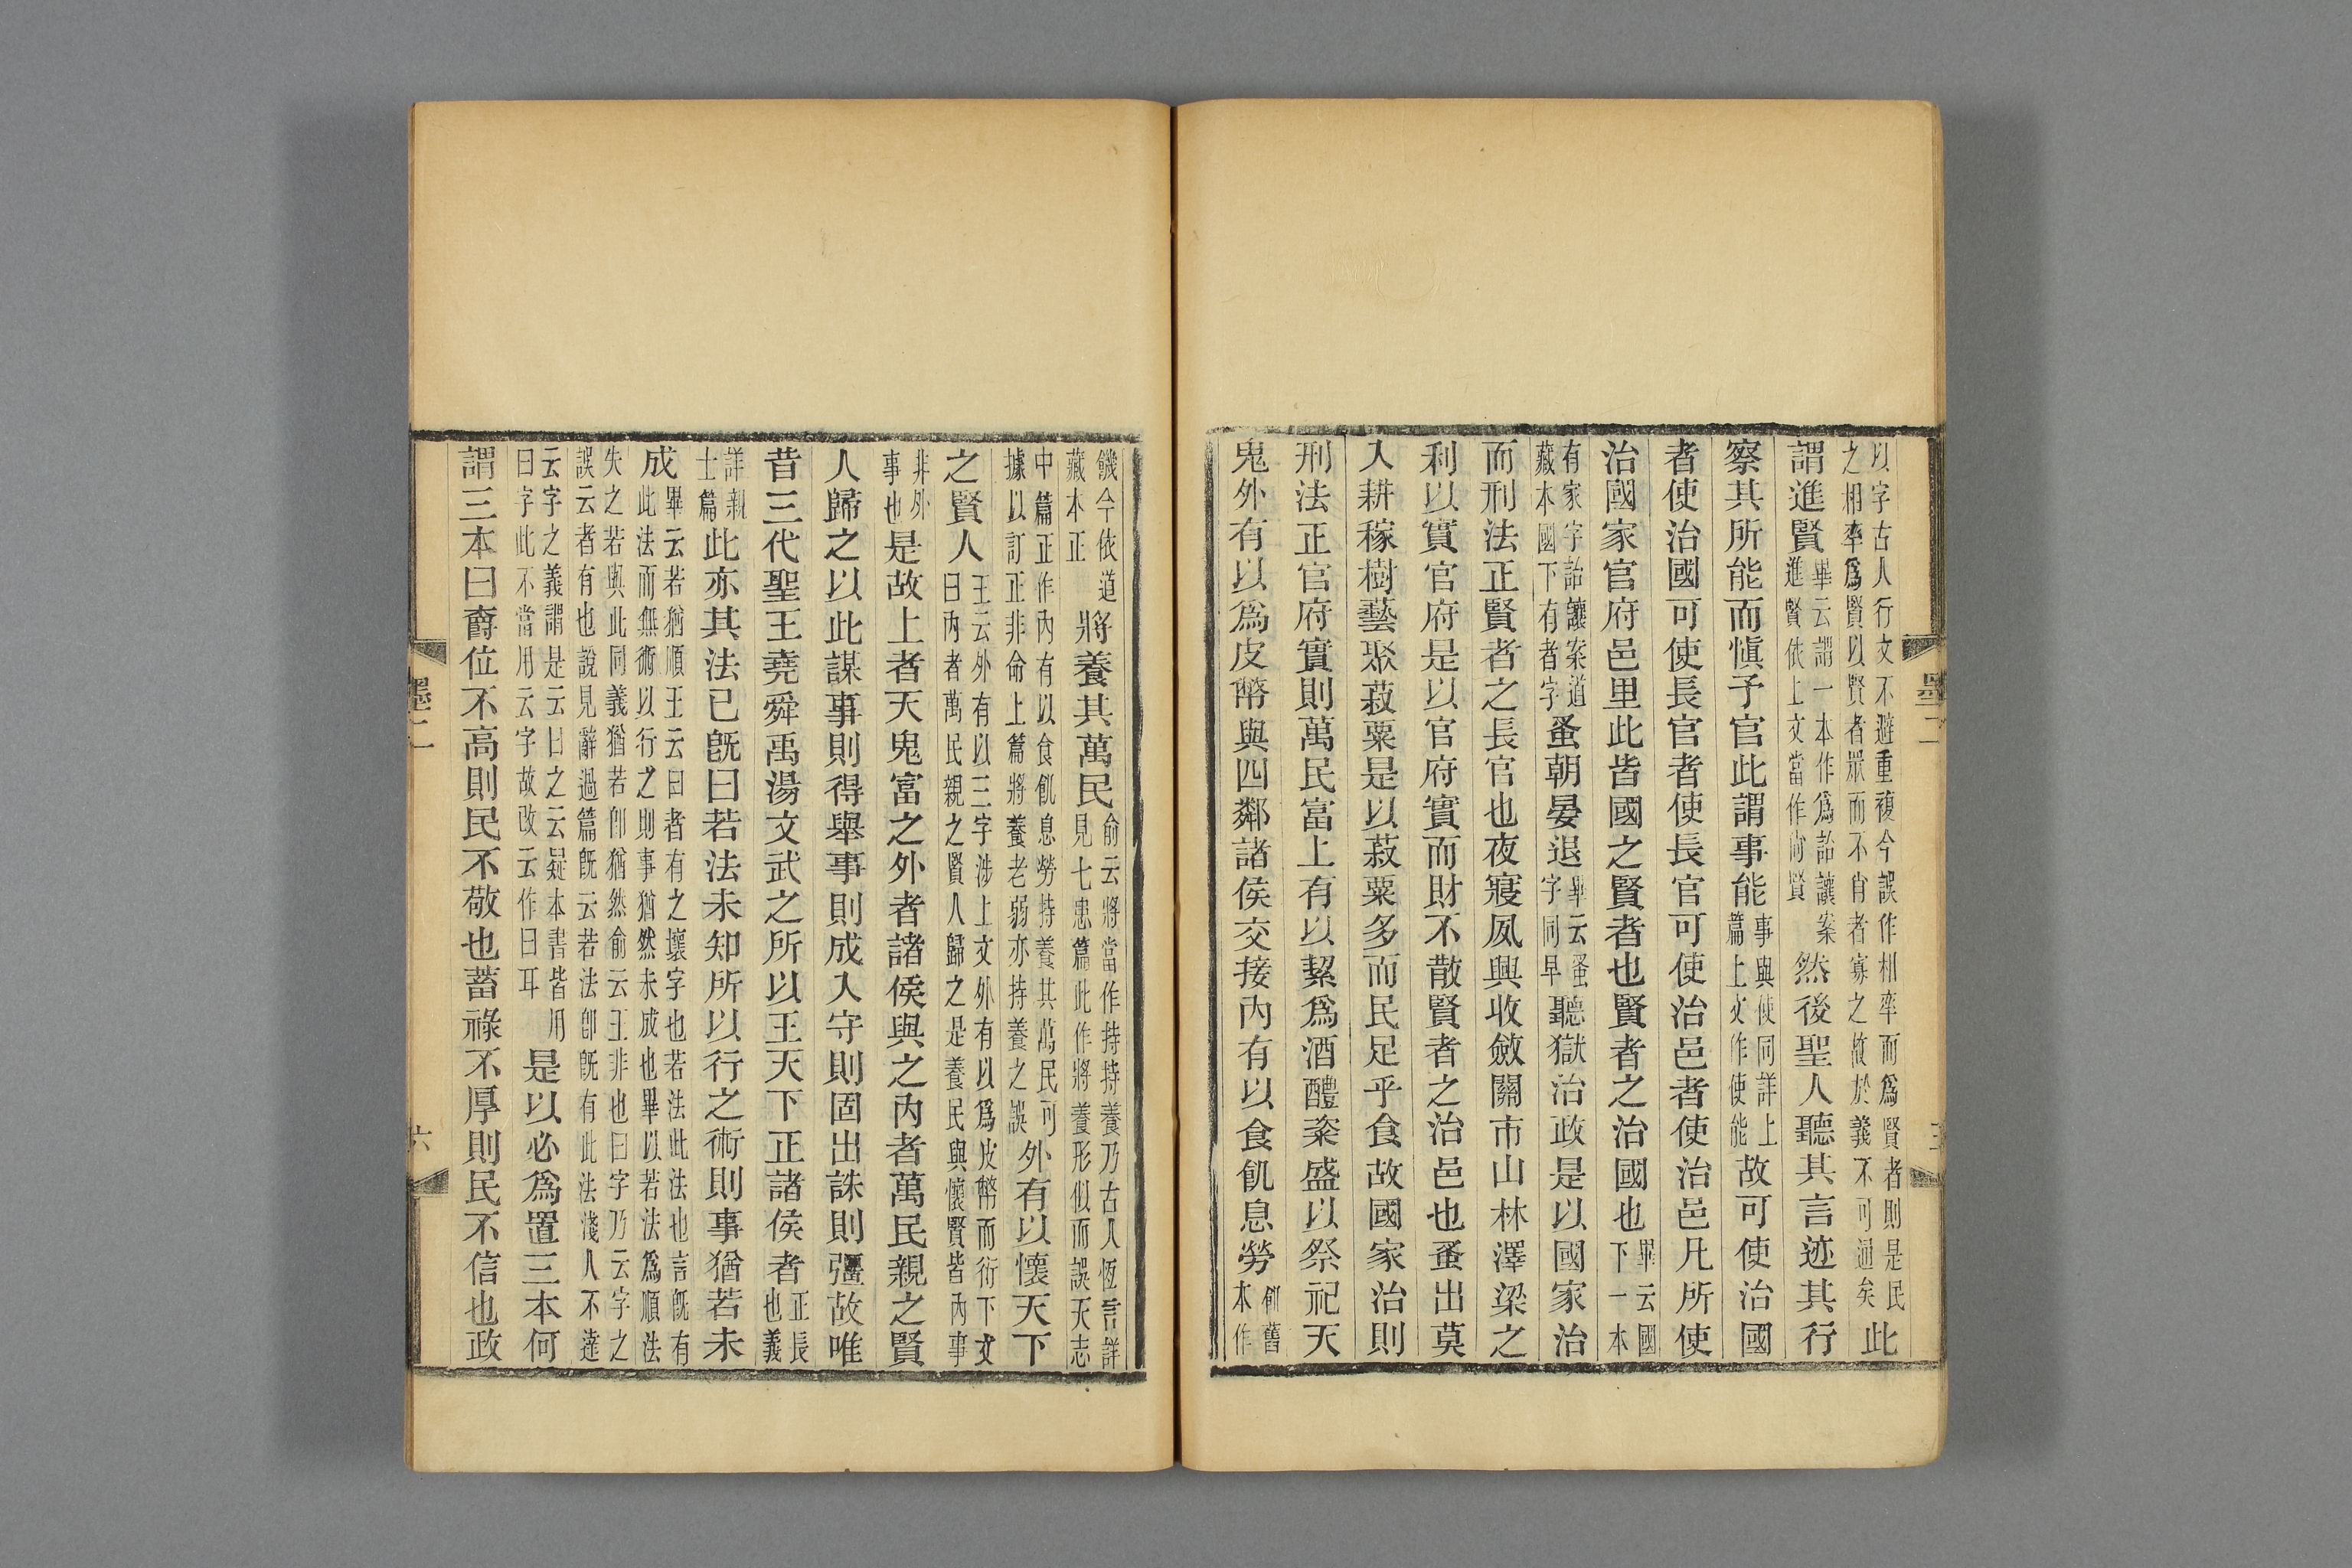 以字古人行文不避重複今誤作相率而爲賢者則是民
之相率爲賢以賢者衆而不肖者寡之故於義不可通矣此
謂進賢畢云謂一本作爲詒讓案
進賢依上文當作尚賢然後聖人聽其言迹其行
察其所能而愼予官此謂事能事與使同詳上
篇上文作使能故可使治國
者使治國可使長官者使長官可使治邑者使治邑凡所使
治國家官府邑里此皆國之賢者也賢者之治國也畢云國
下一本
有家字詒讓案道
藏本國下有者字蚤朝晏退畢云蚤
字同早聽獄治政是以國家治
而刑法正賢者之長官也夜寢夙興收斂關市山林澤梁之
利以實官府是以官府實而財不散賢者之治邑也蚤出莫
入耕稼樹藝聚菽粟是以菽粟多而民足乎食故國家治則
刑法正官府實則萬民富上有以絜爲酒醴粢盛以祭祀天
鬼外有以爲皮幣與四鄰諸侯交接內有以食飢息勞飢舊
本作
墨二
饑今依道
藏本正將養其萬民俞云將當作持持養乃古人恆言詳
見七患篇此作將養形似而誤天志
中篇正作內有以食飢息勞持養其萬民可
據以訂正非命上篇將養老弱亦持養之誤外有以懷天下
之賢人王云外有以三字涉上文外有以爲皮幣而衍下文
曰內者萬民親之賢人歸之是養民與懷賢皆內事
非外
事也是故上者天鬼富之外者諸侯與之內者萬民親之賢
人歸之以此謀事則得舉事則成入守則固出誅則彊故唯
昔三代聖王堯舜禹湯文武之所以王天下正諸侯者正長
也義
詳親
士篇此亦其法已旣曰若法未知所以行之術則事猶若未
成畢云若猶順王云曰者有之壞字也若法此法也言旣有
此法而無術以行之則事猶然未成也畢以若法爲順法
失之若與此同義猶若卽猶然俞云王非也曰字乃云字之
誤云者有也說見辭過篇旣云若法卽旣有此法淺人不達
云字之義謂是云曰之云疑本書皆用
曰字此不當用云字故改云作曰耳是以必爲置三本何
謂三本曰爵位不高則民不敬也蓄祿不厚則民不信也政
墨二
六